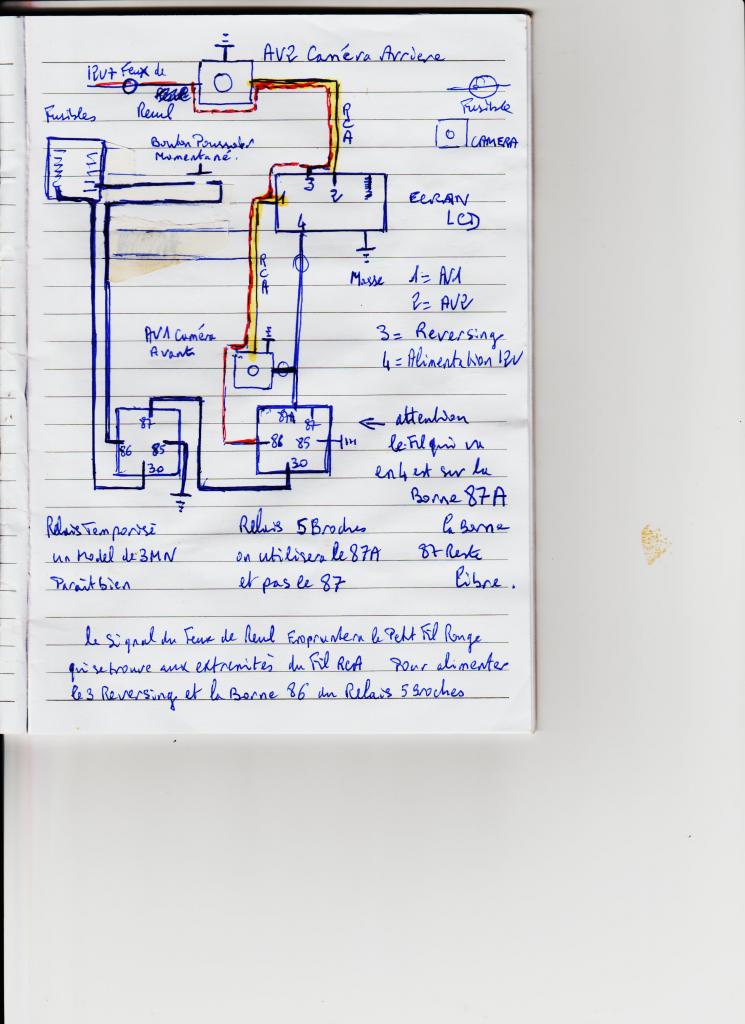 AV2 Caméra Arriere
12V+ Feux de
Recul
Fusibles
Fusible
CAMERA
Bouton Poussoir
Momentané.
RCA
3
2
1
4
ECRAN
LCD
Masse
1 = AV1
2 = AV2
3 = Reversing
4 = Alimentation 12V
RCA
AV1 Caméra
Avant
87
86
85
30
87A
87
86
85
30
attention
le Fil qui va
en 4 est sur la
Borne 87A
la Borne
87 Reste
libre.
Relais Temporisé
un model de 3MN
Parait bien
Relais 5 Broches
on utilisera le 87A
et pas le 87
le Signal du Feux de Reul Empruntera le Petit Fil Rouge
qui se trouve aux extremités du Fil RCA Pour alimenter
le 3 Reversing et la Borne 86 du Relais 5 Broches